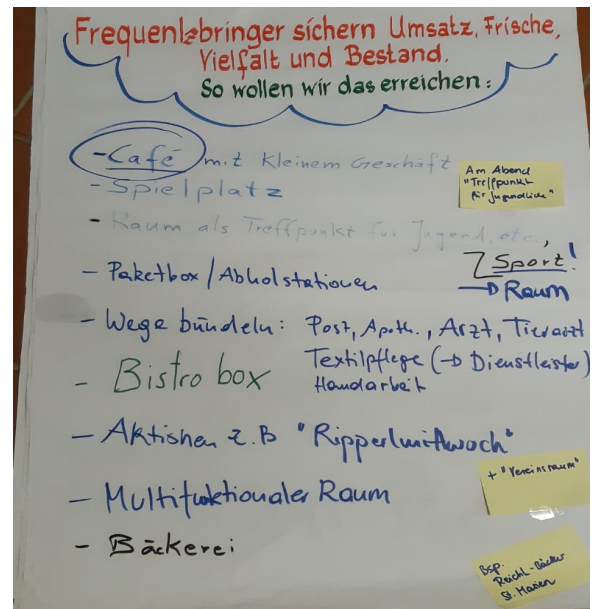 Frequenzbringer sichern Umsatz, Frische,
Vielfalt und Bestand.
So wollen wir das erreichen:
- Café mit kleinem Geschäft
Am Abend
"Treffpunkt
für Jugendliche"
- Spielplatz
- Raum als Treffpunkt für Jugend, etc.,
Sport!
→ Raum
- Paketbox / Abholstationen
- Wege bündeln: Post, Apoth., Arzt, Tierarzt
Textilpflege (→ Dienstleister)
Handarbeit
- Bistro box
- Aktionen z.B "Ripperlmittwoch"
+ "Vereinsraum"
- Multifunktionaler Raum
- Bäckerei
Bsp:
Reichl-Bäcker
St. Marien